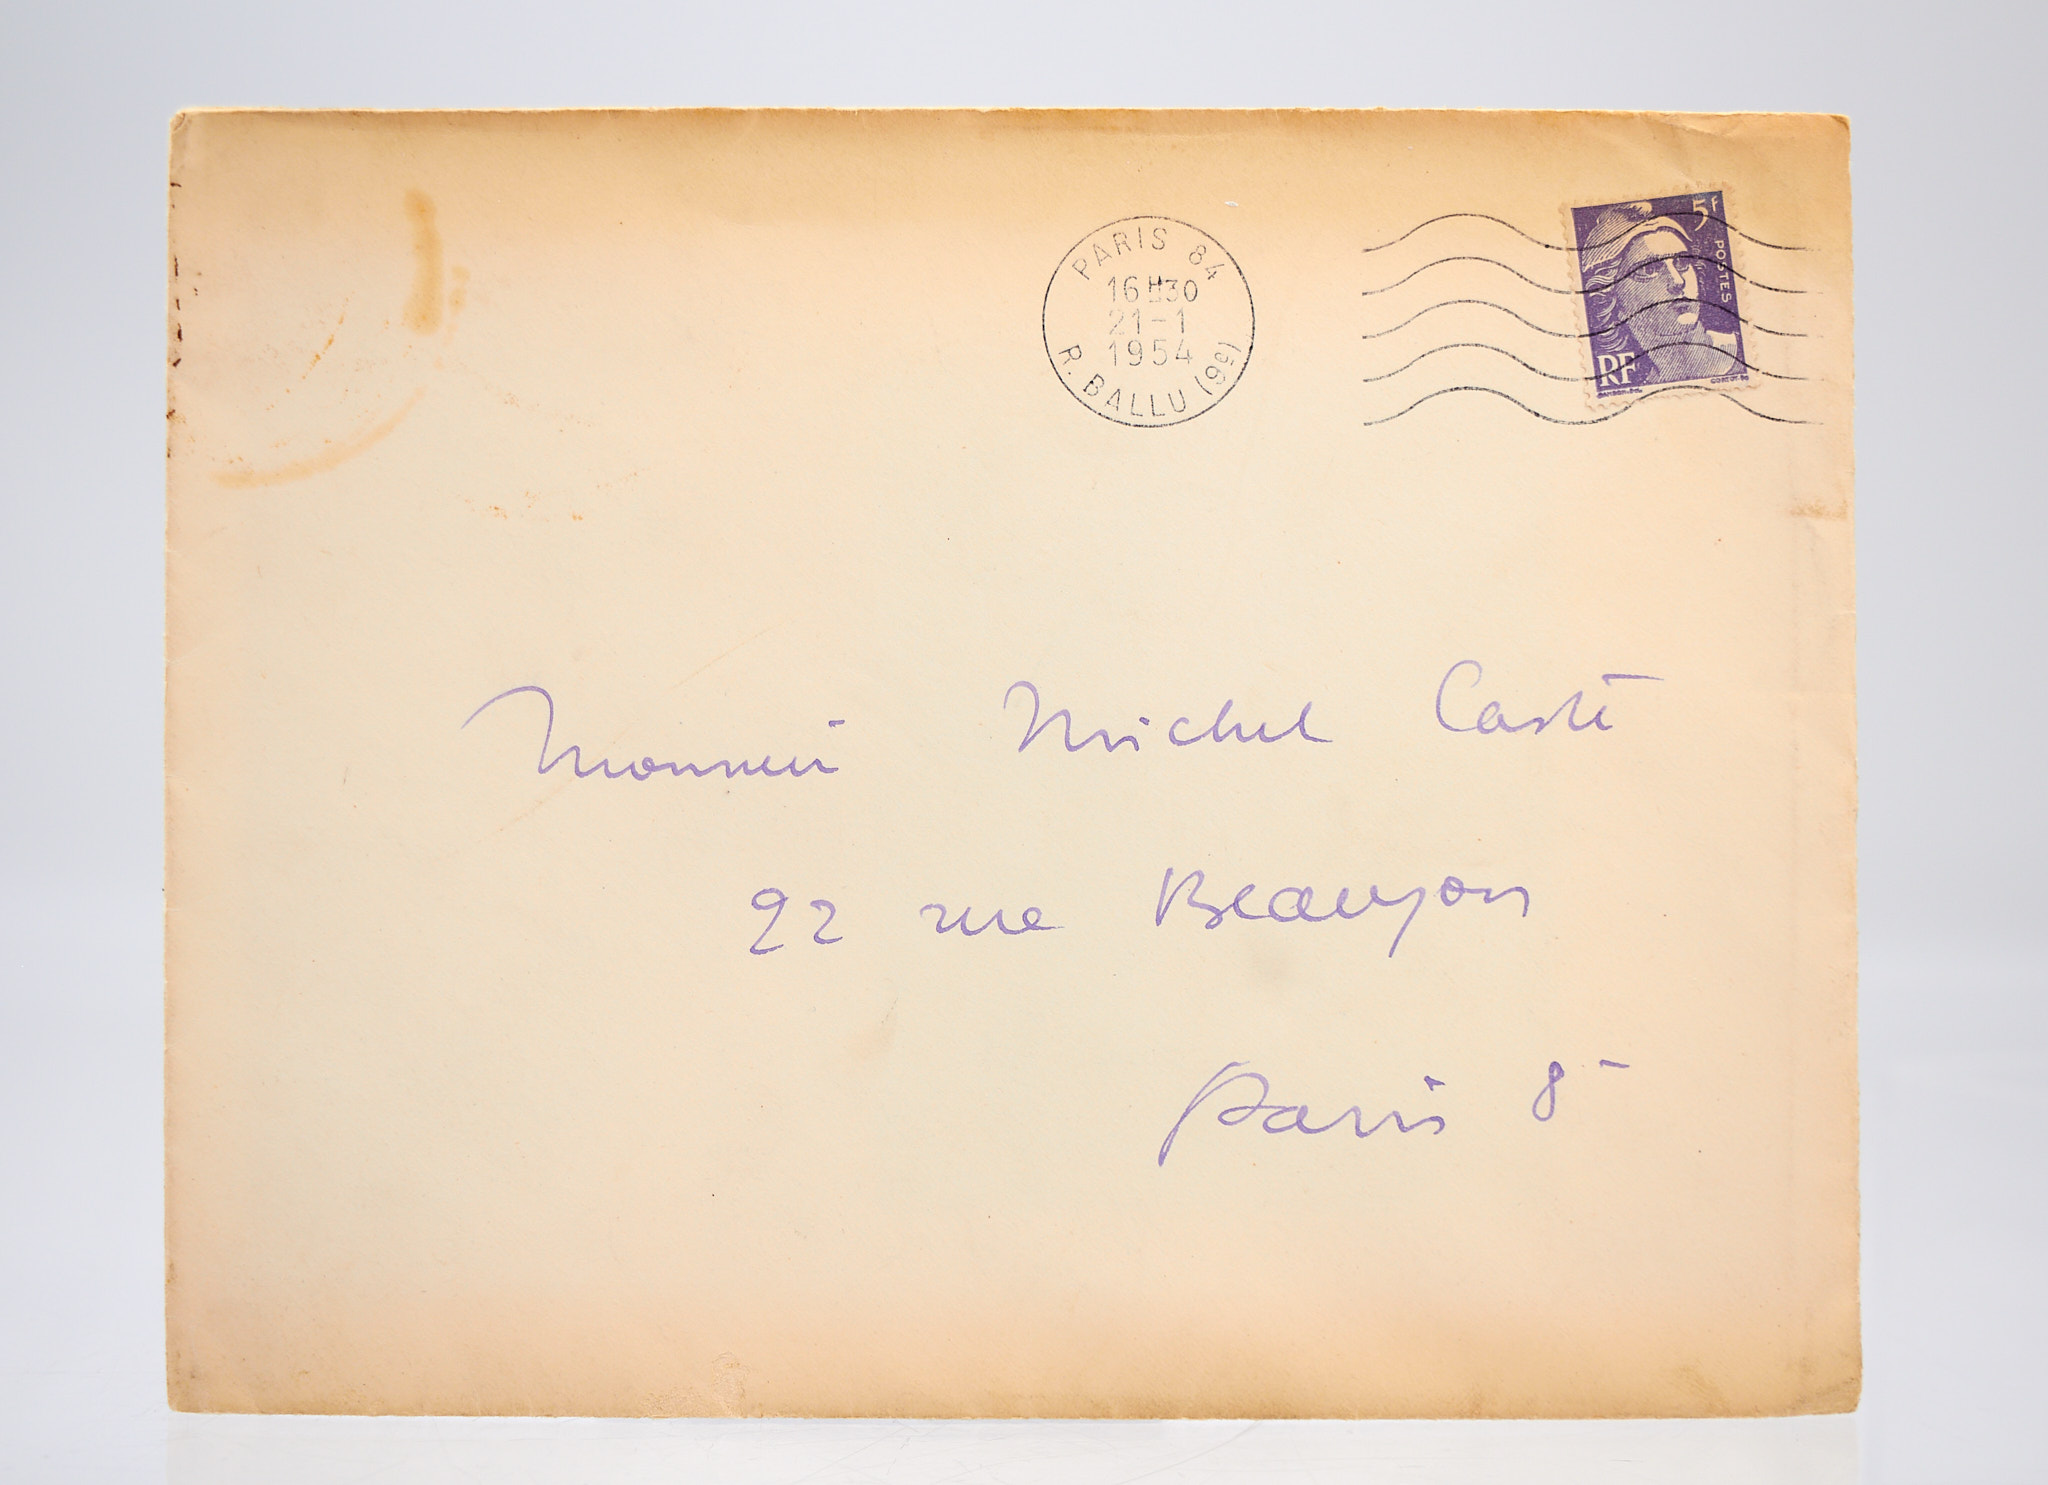 PARIS 84
16H30
21-1
1954
R. BALLU (9e)
5f
POSTES
RF
Monsieur Michel Casté
22 rue Beaujon
Paris 8e